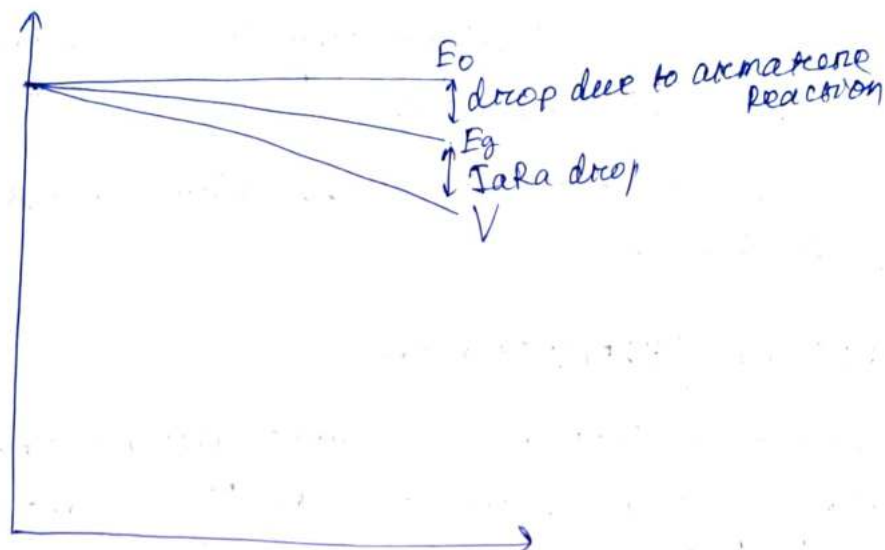 E0
drop due to armature
Reaction
Eg
IaRa drop
V